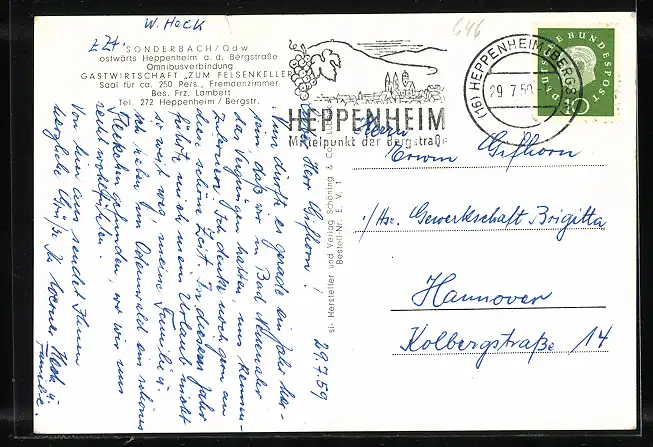 W. Heck
z.Zt. SONDERBACH/Odw
ostwärts Heppenheim a. d. Bergstraße
Omnibusverbindung
GASTWIRTSCHAFT „ZUM FELSENKELLER"
Saal für ca. 250 Pers., Fremdenzimmer
Bes. Frz. Lambert
Tel. 272 Heppenheim / Bergstr.
29.7.59
Lieber Herr Gifhorn!
Nun dürfte es gerade ein Jahr her-
sein, daß wir in Bad Ahrweiler
das Vergnügen hatten, uns kennen-
zulernen. Ich denke noch gern an
diese schöne Zeit. In diesem Jahr
führte mich mein Urlaub nicht
so weit weg meine Familie u.
ich haben im Odenwald ein schönes
Fleckchen gefunden, wo wir uns
recht wohlfühlen.
Von hier aus sendet Ihnen
herzliche Grüße Ihr Werner Heck u.
Familie.
si- Hersteller und Verlag Schöning & Co
Bestell-Nr. E. V. 1
646
HEPPENHEIM
Mittelpunkt der Bergstraße
(16) HEPPENHEIM (BERGSTR)
29.7.59
DEUTSCHE BUNDESPOST
10
Herrn
Erwin Gifhorn
i/Hs. Gewerkschaft Brigitta
Hannover
Kolbergstraße 14